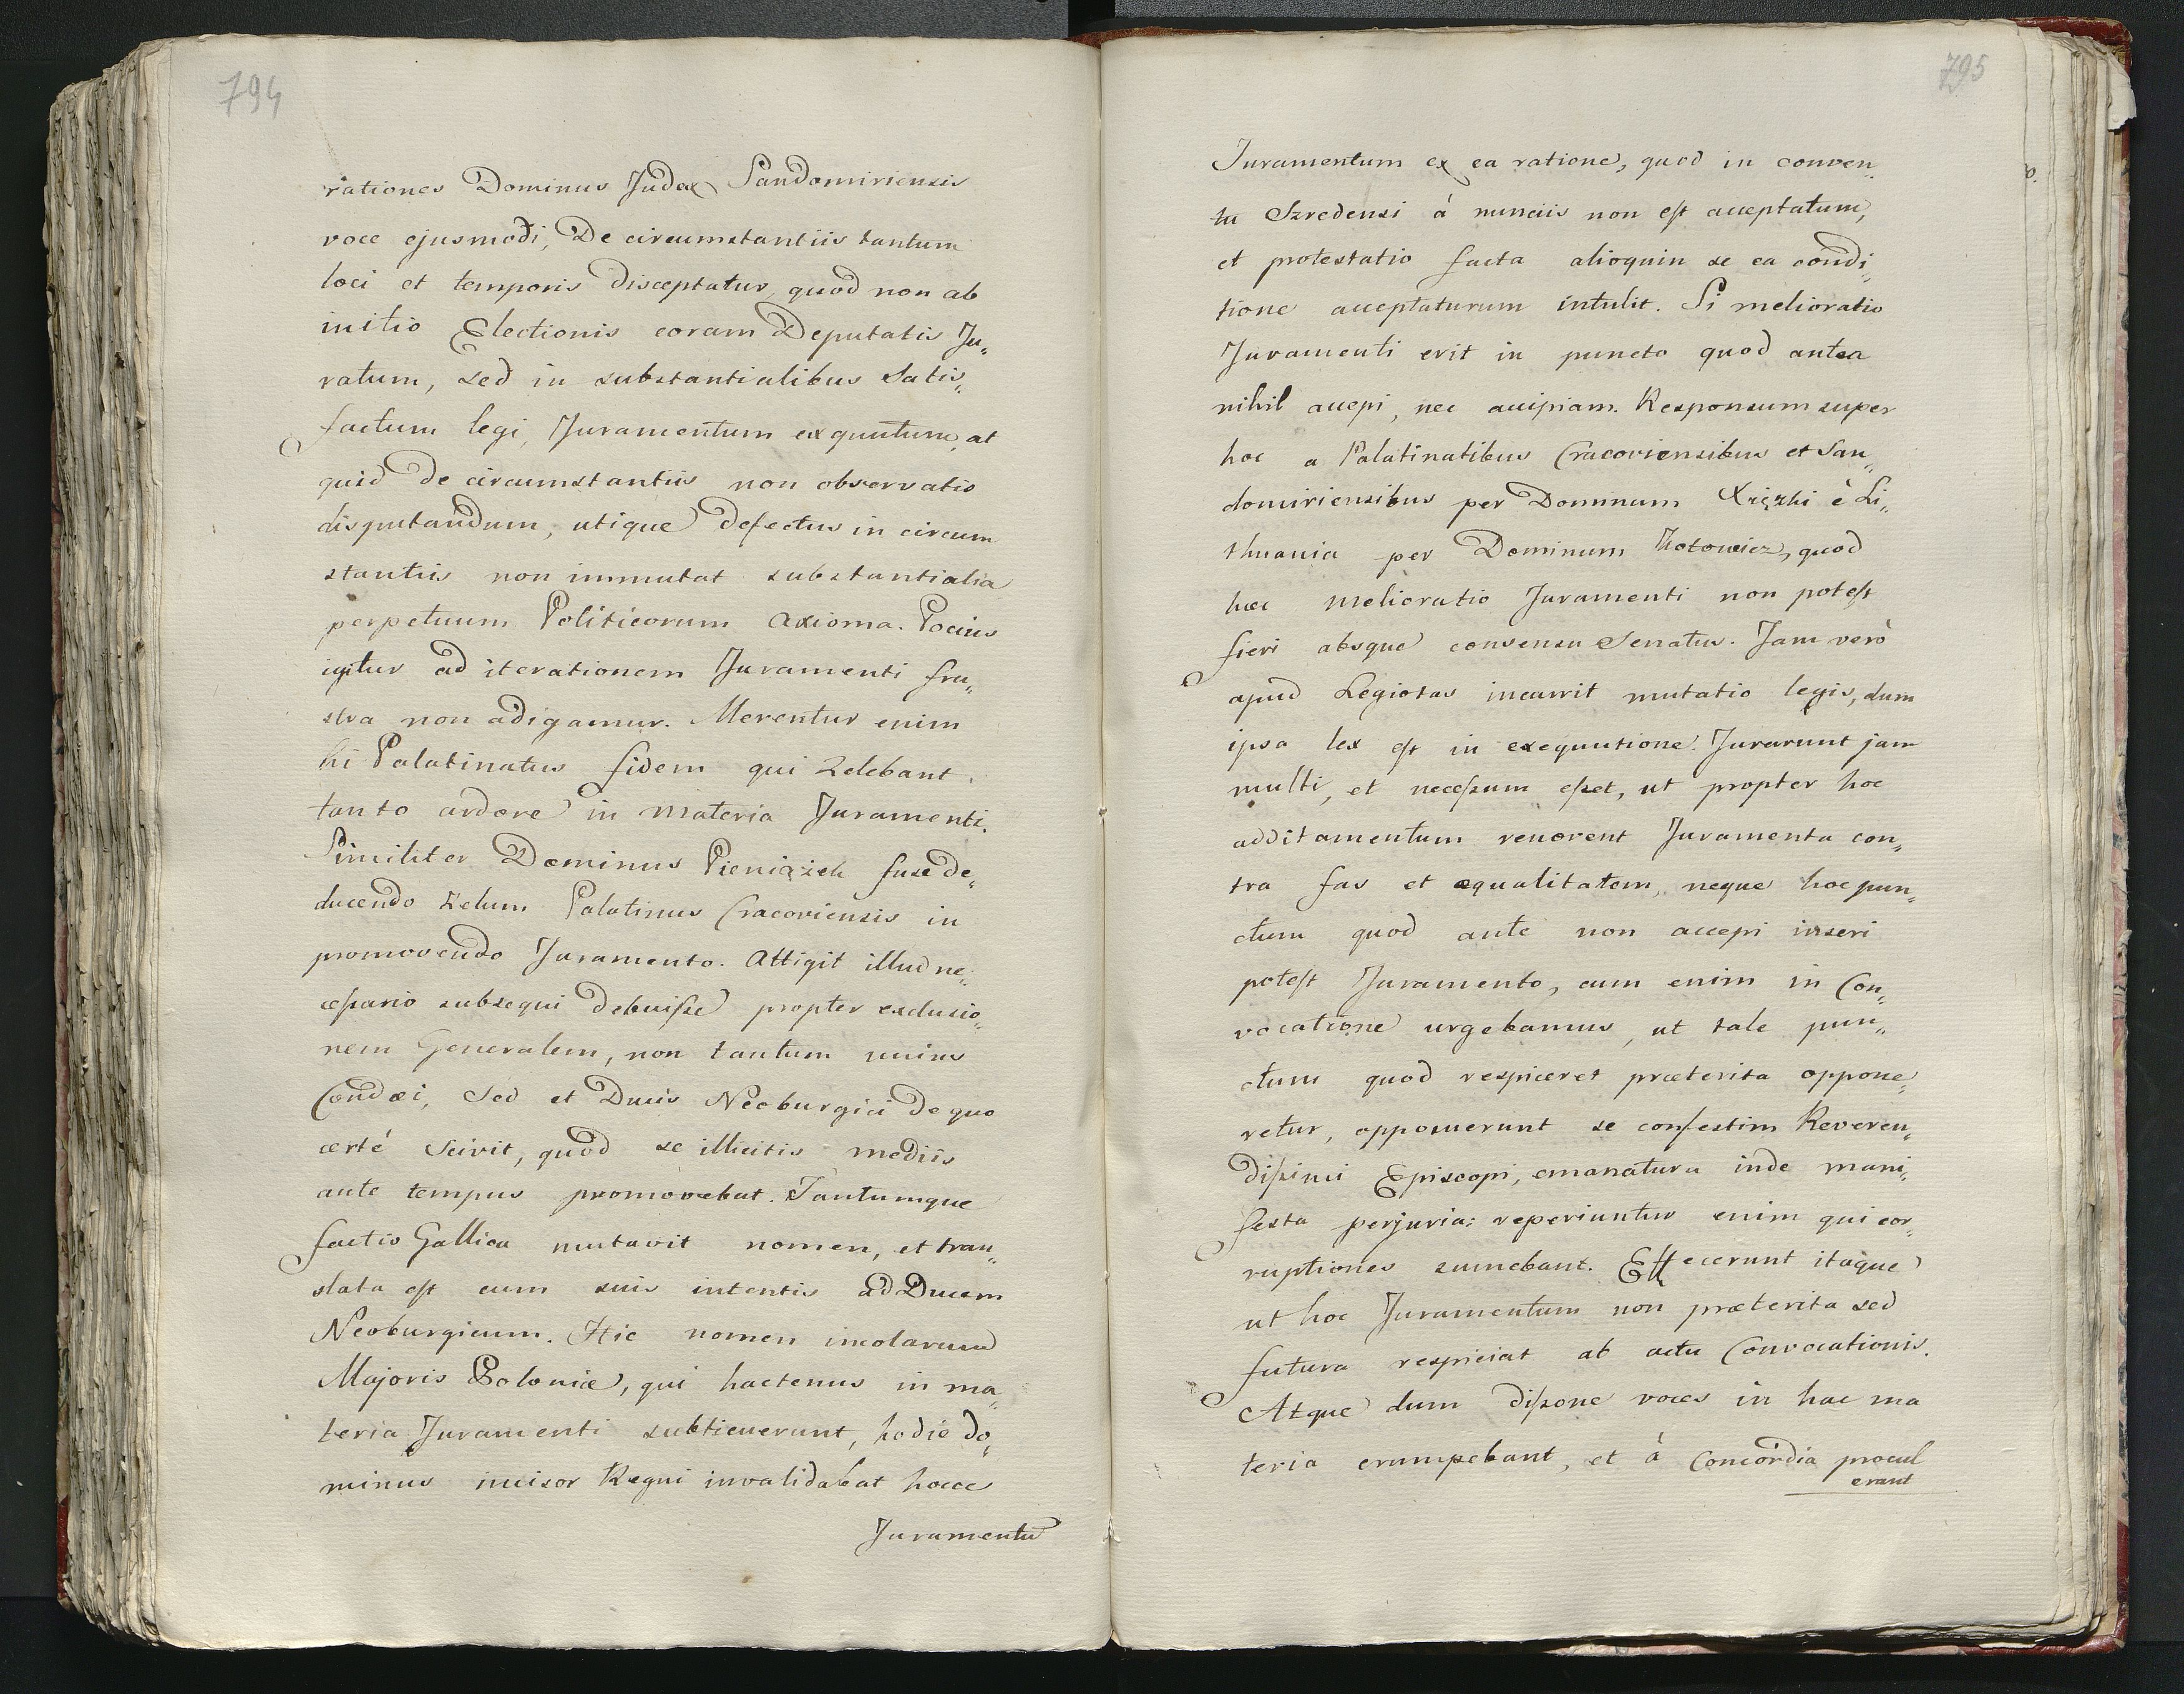 794
rationes Dominus Judex Sandomiriensis
voce ejusmodi, De circumstantiis tantum
loci et temporis disceptatur, quod non ab
initio Electionis coram Deputatis Ju„
ratum, sed in substantialibus Satis„
factum legi, Juramentum exequutum, at
quid de circumstantiis non observatis
disputandum, utique defectus in circum
stantiis non immutat substantialia
perpetuum Politicorum axioma. Pocius
igitur ad iterationem Juramenti fru„
stra non adigamur. Merentur enim
hi Palatinatus fidem qui zelebant
tanto ardore in materia Juramenti.
Similiter Dominus Pieniążek fuse de„
ducendo zelum Palatinus Cracoviensis in
promovendo Juramento. Attigit illud ne„
cessario subsequi debuisse propter exclusio„
nem Generalem, non tantum unius
Condæi, Sed et Ducis Neoburgici de quo
certé Scivit, quod se illicitis mediis
ante tempus promovebat. Tantumque
factio Gallica mutavit nomen, et tran„
slata est cum suis intentis ad Ducem
Neoburgicum. Hic nomen incolarum
Majoris Poloniæ, qui hactenus in ma„
teria Juramenti subticuerunt, hodie Do„
minus incisor Regni invalidabat hocce
Juramentū
795
Juramentum ex ea ratione, quod in conven„
tu Szredensi à nunciis non est acceptatum,
et protestatio facta alioquin se ea condi„
tione acceptaturum intulit. Si melioratio
Juramenti erit in puncto quod antea
nihil accepi, nec accipiam. Responsum super
hoc a Palatinatibus Cracoviensibus et San„
domiriensibus per Dominum Xiązki è Li„
thuania per Dominum Kotowicz, quod
hæc melioratio Juramenti non potest
fieri absque consensu Senatus. Jam verò
apud Legistas incurrit mutatio legis, dum
ipsa lex est in exequutione. Jurarunt jam
multi, et necessum esset, ut propter hoc
additamentum revocent Juramenta con„
tra fas et æqualitatem, neque hoc pun„
ctum quod ante non accepi inseri
potest Juramento, cum enim in Con„
vocatione urgebamus, ut tale pun„
ctum quod respiceret præterita appone„
retur, opposuerunt se confestim Reveren„
dissimi Episcopi, emanatura inde mani„
festa perjuria: reperiuntur enim qui cor„
ruptiones sumebant. Effecerunt itaque
ut hoc Juramentum non præterita sed
futura respiciat ab actu Convocationis.
Atque dum dissonæ voces in hac ma
teria erumpebant, et à Concordia procul
erant